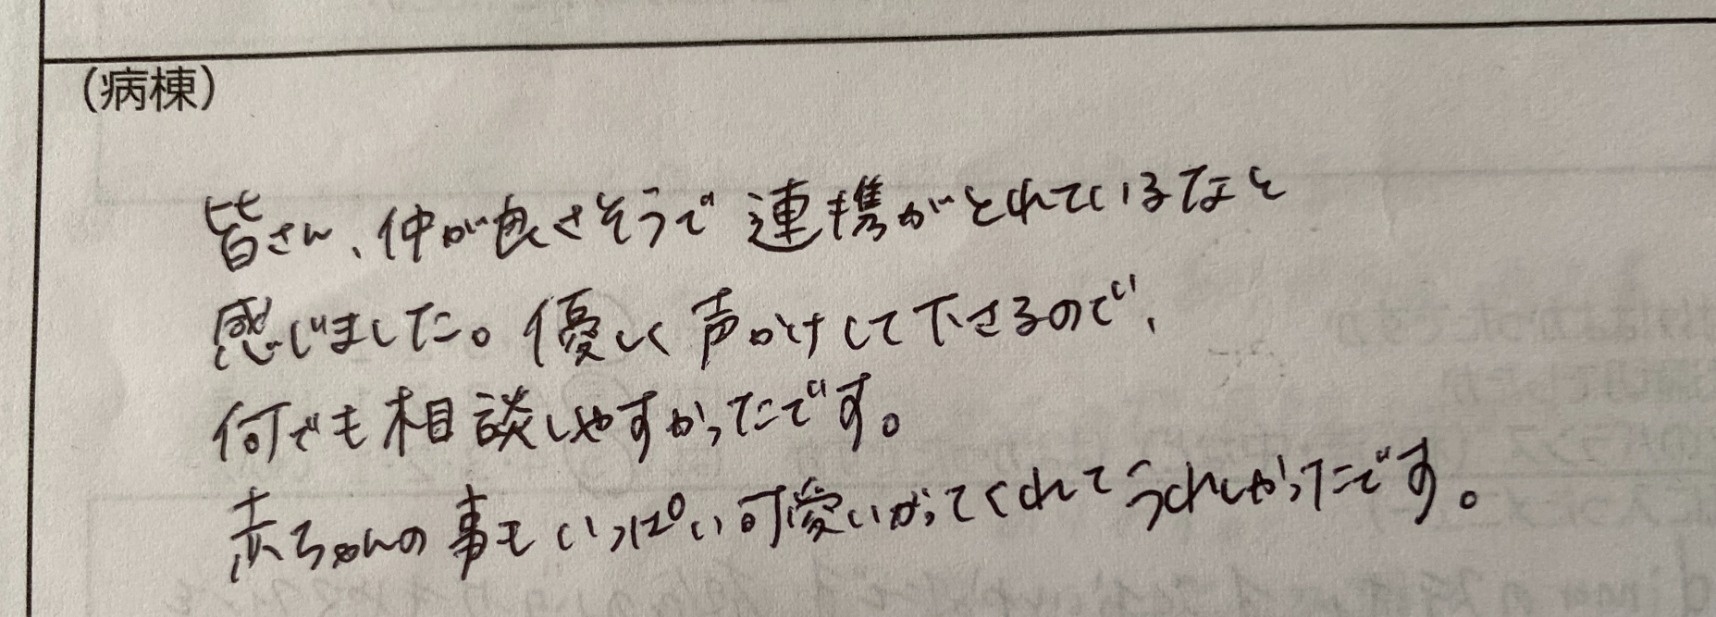 (病棟)
皆さん、仲が良さそうで連携がとれているなと
感じました。優しく声かけして下さるので、
何でも相談しやすかったです。
赤ちゃんの事もいっぱい可愛いがってくれてうれしかったです。